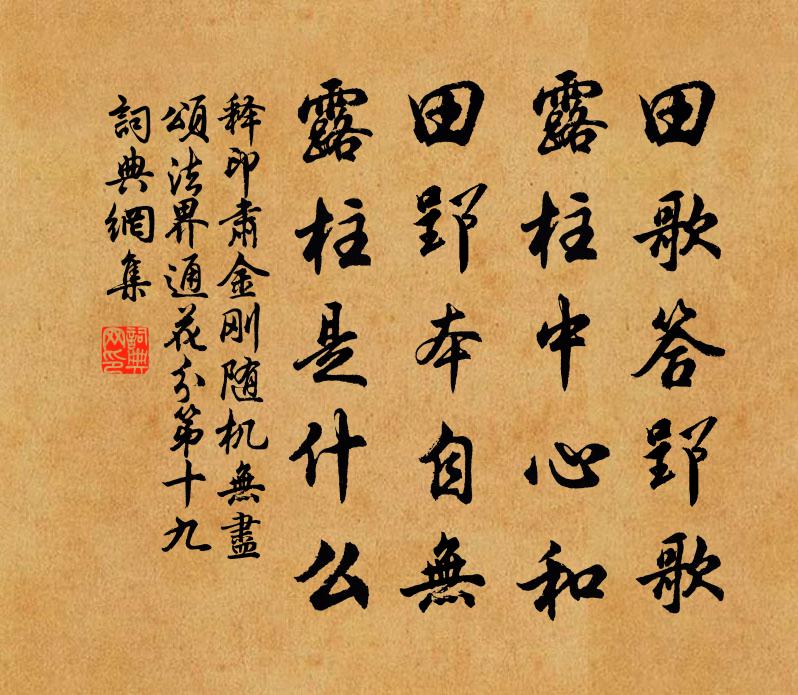 田歌答郢歌
露柱中心和
田郢本自無
露柱是什么
释印肃金刚随机無盡
頌法界通花分第十九
詞典網集
詞典网印